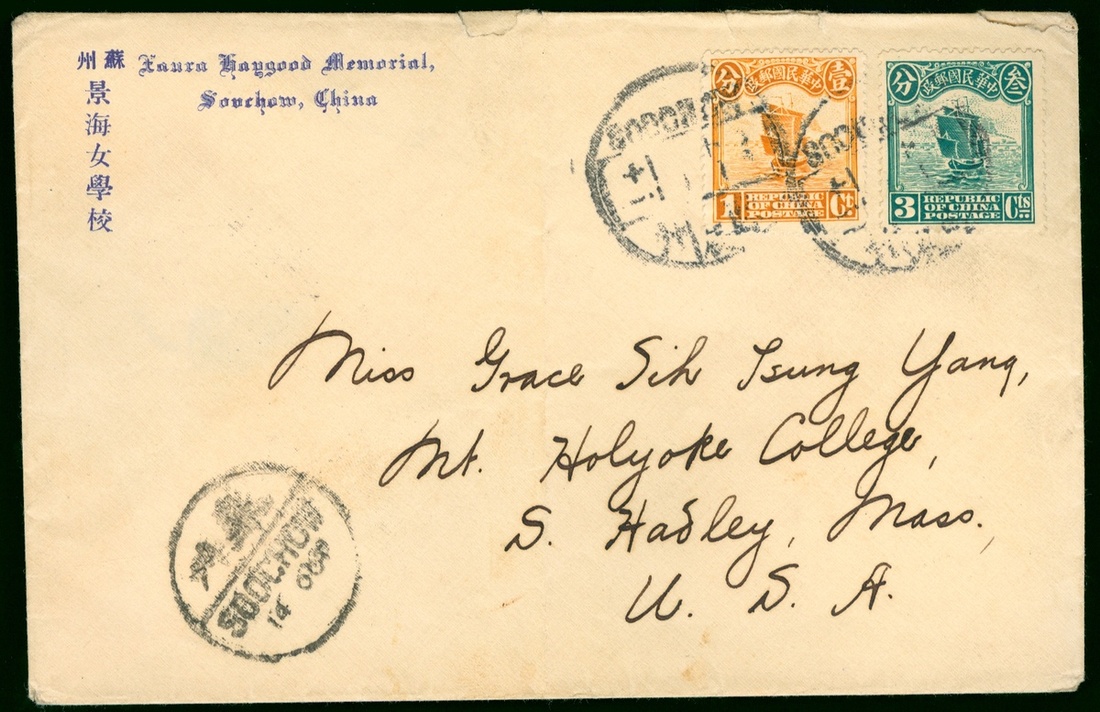 蘇州
景海女學校
Laura Haygood Memorial,
Soochow, China
中華民國郵政
壹分
1 Ct
REPUBLIC
OF CHINA
POSTAGE
中華民國郵政
叁分
3 Cts
REPUBLIC
OF CHINA
POSTAGE
SOOCHOW
SOOCHOW
Miss Grace Sih Tsung Yang,
Mt. Holyoke College,
S. Hadley, Mass.
U. S. A.
SOOCHOW